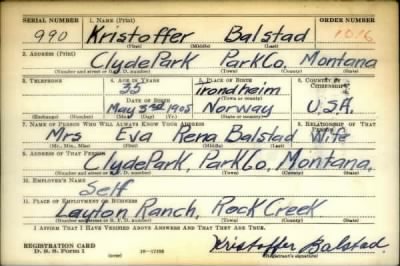 SERIAL NUMBER 1. NAME (Print) ORDER NUMBER
990 Kristoffer Balstad 1016
(First) (Middle) (Last)
2. ADDRESS (Print)
Clyde Park Park Co, Montana
(Number and street or R. F. D. number) (Town) (County) (State)
3. TELEPHONE 4. AGE IN YEARS 5. PLACE OF BIRTH 6. COUNTRY OF CITIZENSHIP
35 Trondheim
DATE OF BIRTH (Town or county)
May 3rd 1905 Norway U.S.A.
(Exchange) (Number) (Mo.) (Day) (Yr.) (State or country)
7. NAME OF PERSON WHO WILL ALWAYS KNOW YOUR ADDRESS 8. RELATIONSHIP OF THAT PERSON
Mrs Eva Rena Balstad Wife
(Mr., Mrs., Miss) (First) (Middle) (Last)
9. ADDRESS OF THAT PERSON
Clyde Park, Park Co, Montana.
(Number and street or R. F. D. number) (Town) (County) (State)
10. EMPLOYER'S NAME
Self
11. PLACE OF EMPLOYMENT OR BUSINESS
Layton Ranch, Rock Creek
(Number and street or R. F. D. number) (Town) (County) (State)
I AFFIRM THAT I HAVE VERIFIED ABOVE ANSWERS AND THAT THEY ARE TRUE.
REGISTRATION CARD
D. S. S. Form 1 (over) 16-17105 Kristoffer Balstad
(Registrant's signature)